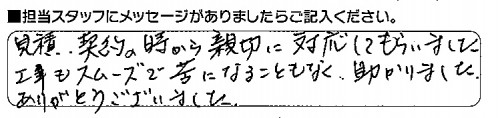 ■担当スタッフにメッセージがありましたらご記入ください。
見積、契約の時から親切に対応してもらいました
工事もスムーズで苦になることもなく、助かりました。
ありがとうございました。